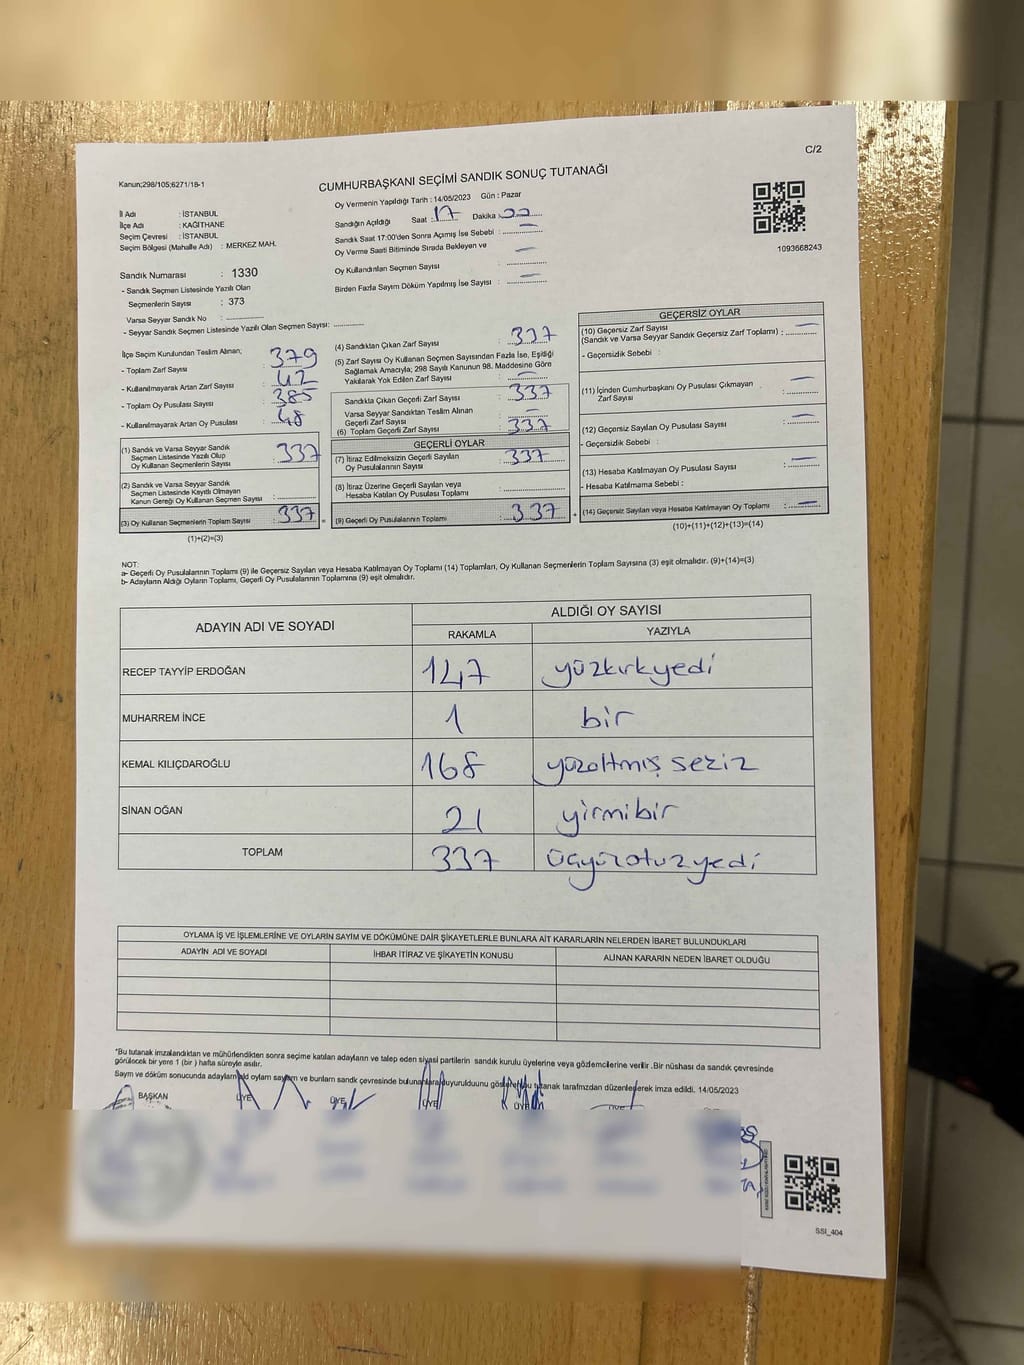 C/2
Kanun;298/105;6271/18-1
CUMHURBAŞKANI SEÇİMİ SANDIK SONUÇ TUTANAĞI
Oy Vermenin Yapıldığı Tarih : 14/05/2023 Gün : Pazar
İl Adı : İSTANBUL
İlçe Adı : KAĞITHANE
Seçim Çevresi : İSTANBUL
Seçim Bölgesi (Mahalle Adı) : MERKEZ MAH.
Sandığın Açıldığı Saat : 17 Dakika
Sandık Saat 17:00'den Sonra Açımış İse Sebebi : —
Oy Verme Saati Bitiminde Sırada Bekleyen ve
Oy Kullandırılan Seçmen Sayısı : —
Birden Fazla Sayım Döküm Yapılmış İse Sayısı : —
1093668243
Sandık Numarası : 1330
- Sandık Seçmen Listesinde Yazılı Olan
Seçmenlerin Sayısı : 373
Varsa Seyyar Sandık No :
- Seyyar Sandık Seçmen Listesinde Yazılı Olan Seçmen Sayısı:
İlçe Seçim Kurulundan Teslim Alınan;
- Toplam Zarf Sayısı : 379
- Kullanılmayarak Artan Zarf Sayısı : 42
- Toplam Oy Pusulası Sayısı : 385
- Kullanılmayarak Artan Oy Pusulası : 48
(1) Sandık ve Varsa Seyyar Sandık
Seçmen Listesinde Yazılı Olup
Oy Kullanan Seçmenlerin Sayısı : 337
(2) Sandık ve Varsa Seyyar Sandık
Seçmen Listesinde Kayıtlı Olmayan
Kanun Gereği Oy Kullanan Seçmen Sayısı :
(3) Oy Kullanan Seçmenlerin Toplam Sayısı : 337 =
(1)+(2)=(3)
(4) Sandıktan Çıkan Zarf Sayısı : 337
(5) Zarf Sayısı Oy Kullanan Seçmen Sayısından Fazla İse, Eşitliği
Sağlamak Amacıyla; 298 Sayılı Kanunun 98. Maddesine Göre
Yakılarak Yok Edilen Zarf Sayısı : —
Sandıkta Çıkan Geçerli Zarf Sayısı : 337
Varsa Seyyar Sandıktan Teslim Alınan
Geçerli Zarf Sayısı : —
(6) Toplam Geçerli Zarf Sayısı : 337
GEÇERLİ OYLAR
(7) İtiraz Edilmeksizin Geçerli Sayılan
Oy Pusulalarının Sayısı : 337
(8) İtiraz Üzerine Geçerli Sayılan veya
Hesaba Katılan Oy Pusulası Toplamı :
(9) Geçerli Oy Pusulalarının Toplamı : 337 +
GEÇERSİZ OYLAR
(10) Geçersiz Zarf Sayısı
(Sandık ve Varsa Seyyar Sandık Geçersiz Zarf Toplamı) : —
- Geçersizdik Sebebi :
(11) İçinden Cumhurbaşkanı Oy Pusulası Çıkmayan
Zarf Sayısı : —
(12) Geçersiz Sayılan Oy Pusulası Sayısı : —
- Geçersizdik Sebebi :
(13) Hesaba Katılmayan Oy Pusulası Sayısı : —
- Hesaba Katılmama Sebebi :
(14) Geçersiz Sayılan veya Hesaba Katılmayan Oy Toplamı : —
(10)+(11)+(12)+(13)=(14)
NOT:
a- Geçerli Oy Pusulalarının Toplamı (9) ile Geçersiz Sayılan veya Hesaba Katılmayan Oy Toplamı (14) Toplamları, Oy Kullanan Seçmenlerin Toplam Sayısına (3) eşit olmalıdır. (9)+(14)=(3)
b- Adayların Aldığı Oyların Toplamı, Geçerli Oy Pusulalarının Toplamına (9) eşit olmalıdır.
ADAYIN ADI VE SOYADI
ALDIĞI OY SAYISI
RAKAMLA YAZIYLA
RECEP TAYYİP ERDOĞAN 147 yüzkırkyedi
MUHARREM İNCE 1 bir
KEMAL KILIÇDAROĞLU 168 yüzaltmış seziz
SİNAN OĞAN 21 yirmibir
TOPLAM 337 üçyüzotuzyedi
OYLAMA İŞ VE İŞLEMLERİNE VE OYLARIN SAYIM VE DÖKÜMÜNE DAİR ŞİKAYETLERLE BUNLARA AİT KARARLARIN NELERDEN İBARET BULUNDUKLARI
ADAYIN ADI VE SOYADI İHBAR İTİRAZ VE ŞİKAYETİN KONUSU ALINAN KARARIN NEDEN İBARET OLDUĞU
*Bu tutanak imzalandıktan ve mühürlendikten sonra seçime katılan adayların ve talep eden siyasi partilerin sandık kurulu üyelerine veya gözlemcilerine verilir .Bir nüshası da sandık çevresinde
görülecek bir yere 1 (bir ) hafta süreyle asılır.
Sayım ve döküm sonucunda bunların sandık çevresinde tutanak tarafımızdan düzenlenerek imza edildi. 14/05/2023
BAŞKAN ÜYE ÜYE ÜYE ÜYE ÜYE
SSI_404